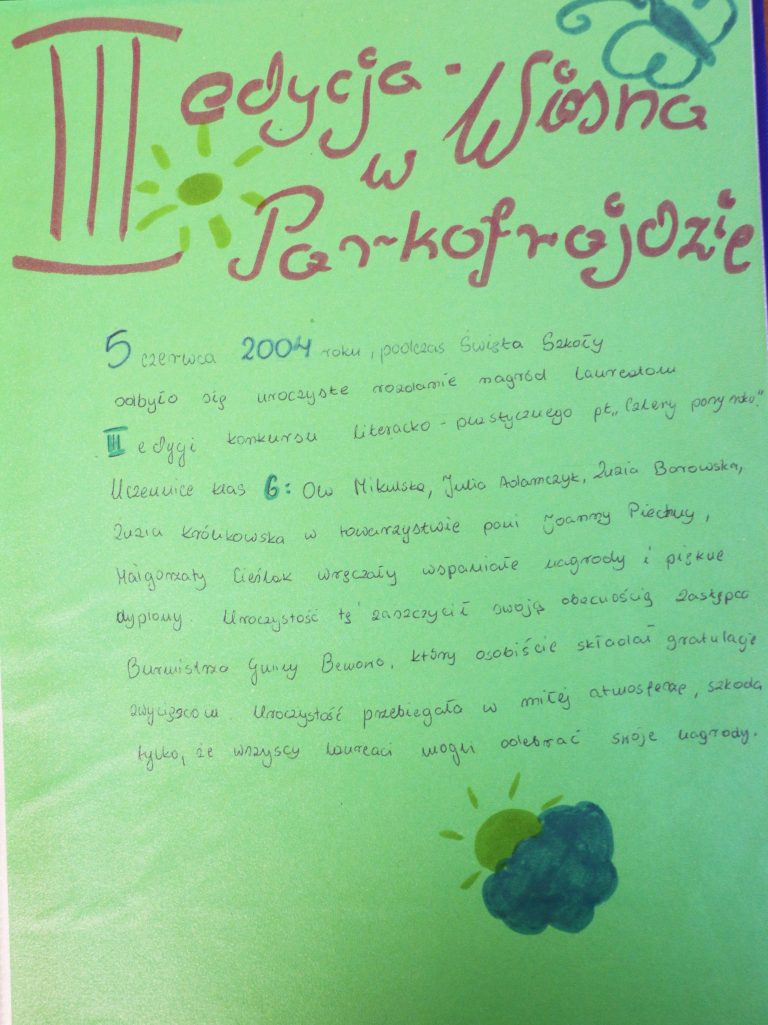 III edycja - Wiosna
w
Parkofrajdzie
5 czerwca 2004 roku, podczas Święta Szkoły
odbyło się uroczyste rozdanie nagród laureatom
III edycji konkursu literacko - plastycznego pt. "Cztery pory roku".
Uczennice klas 6: Ola Mikulska, Julia Adamczyk, Zuzia Borowska,
Zuzia Królikowska w towarzystwie pani Joanny Piechny,
Małgorzaty Cieślak wręczały wspaniałe nagrody i piękne
dyplomy. Uroczystość tę zaszczycił swoją obecnością zastępca
Burmistrza Gminy Bemowo, który osobiście składał gratulacje
zwycięzcom. Uroczystość przebiegała w miłej atmosferze, szkoda
tylko, że wszyscy laureaci mogli odebrać swoje nagrody.